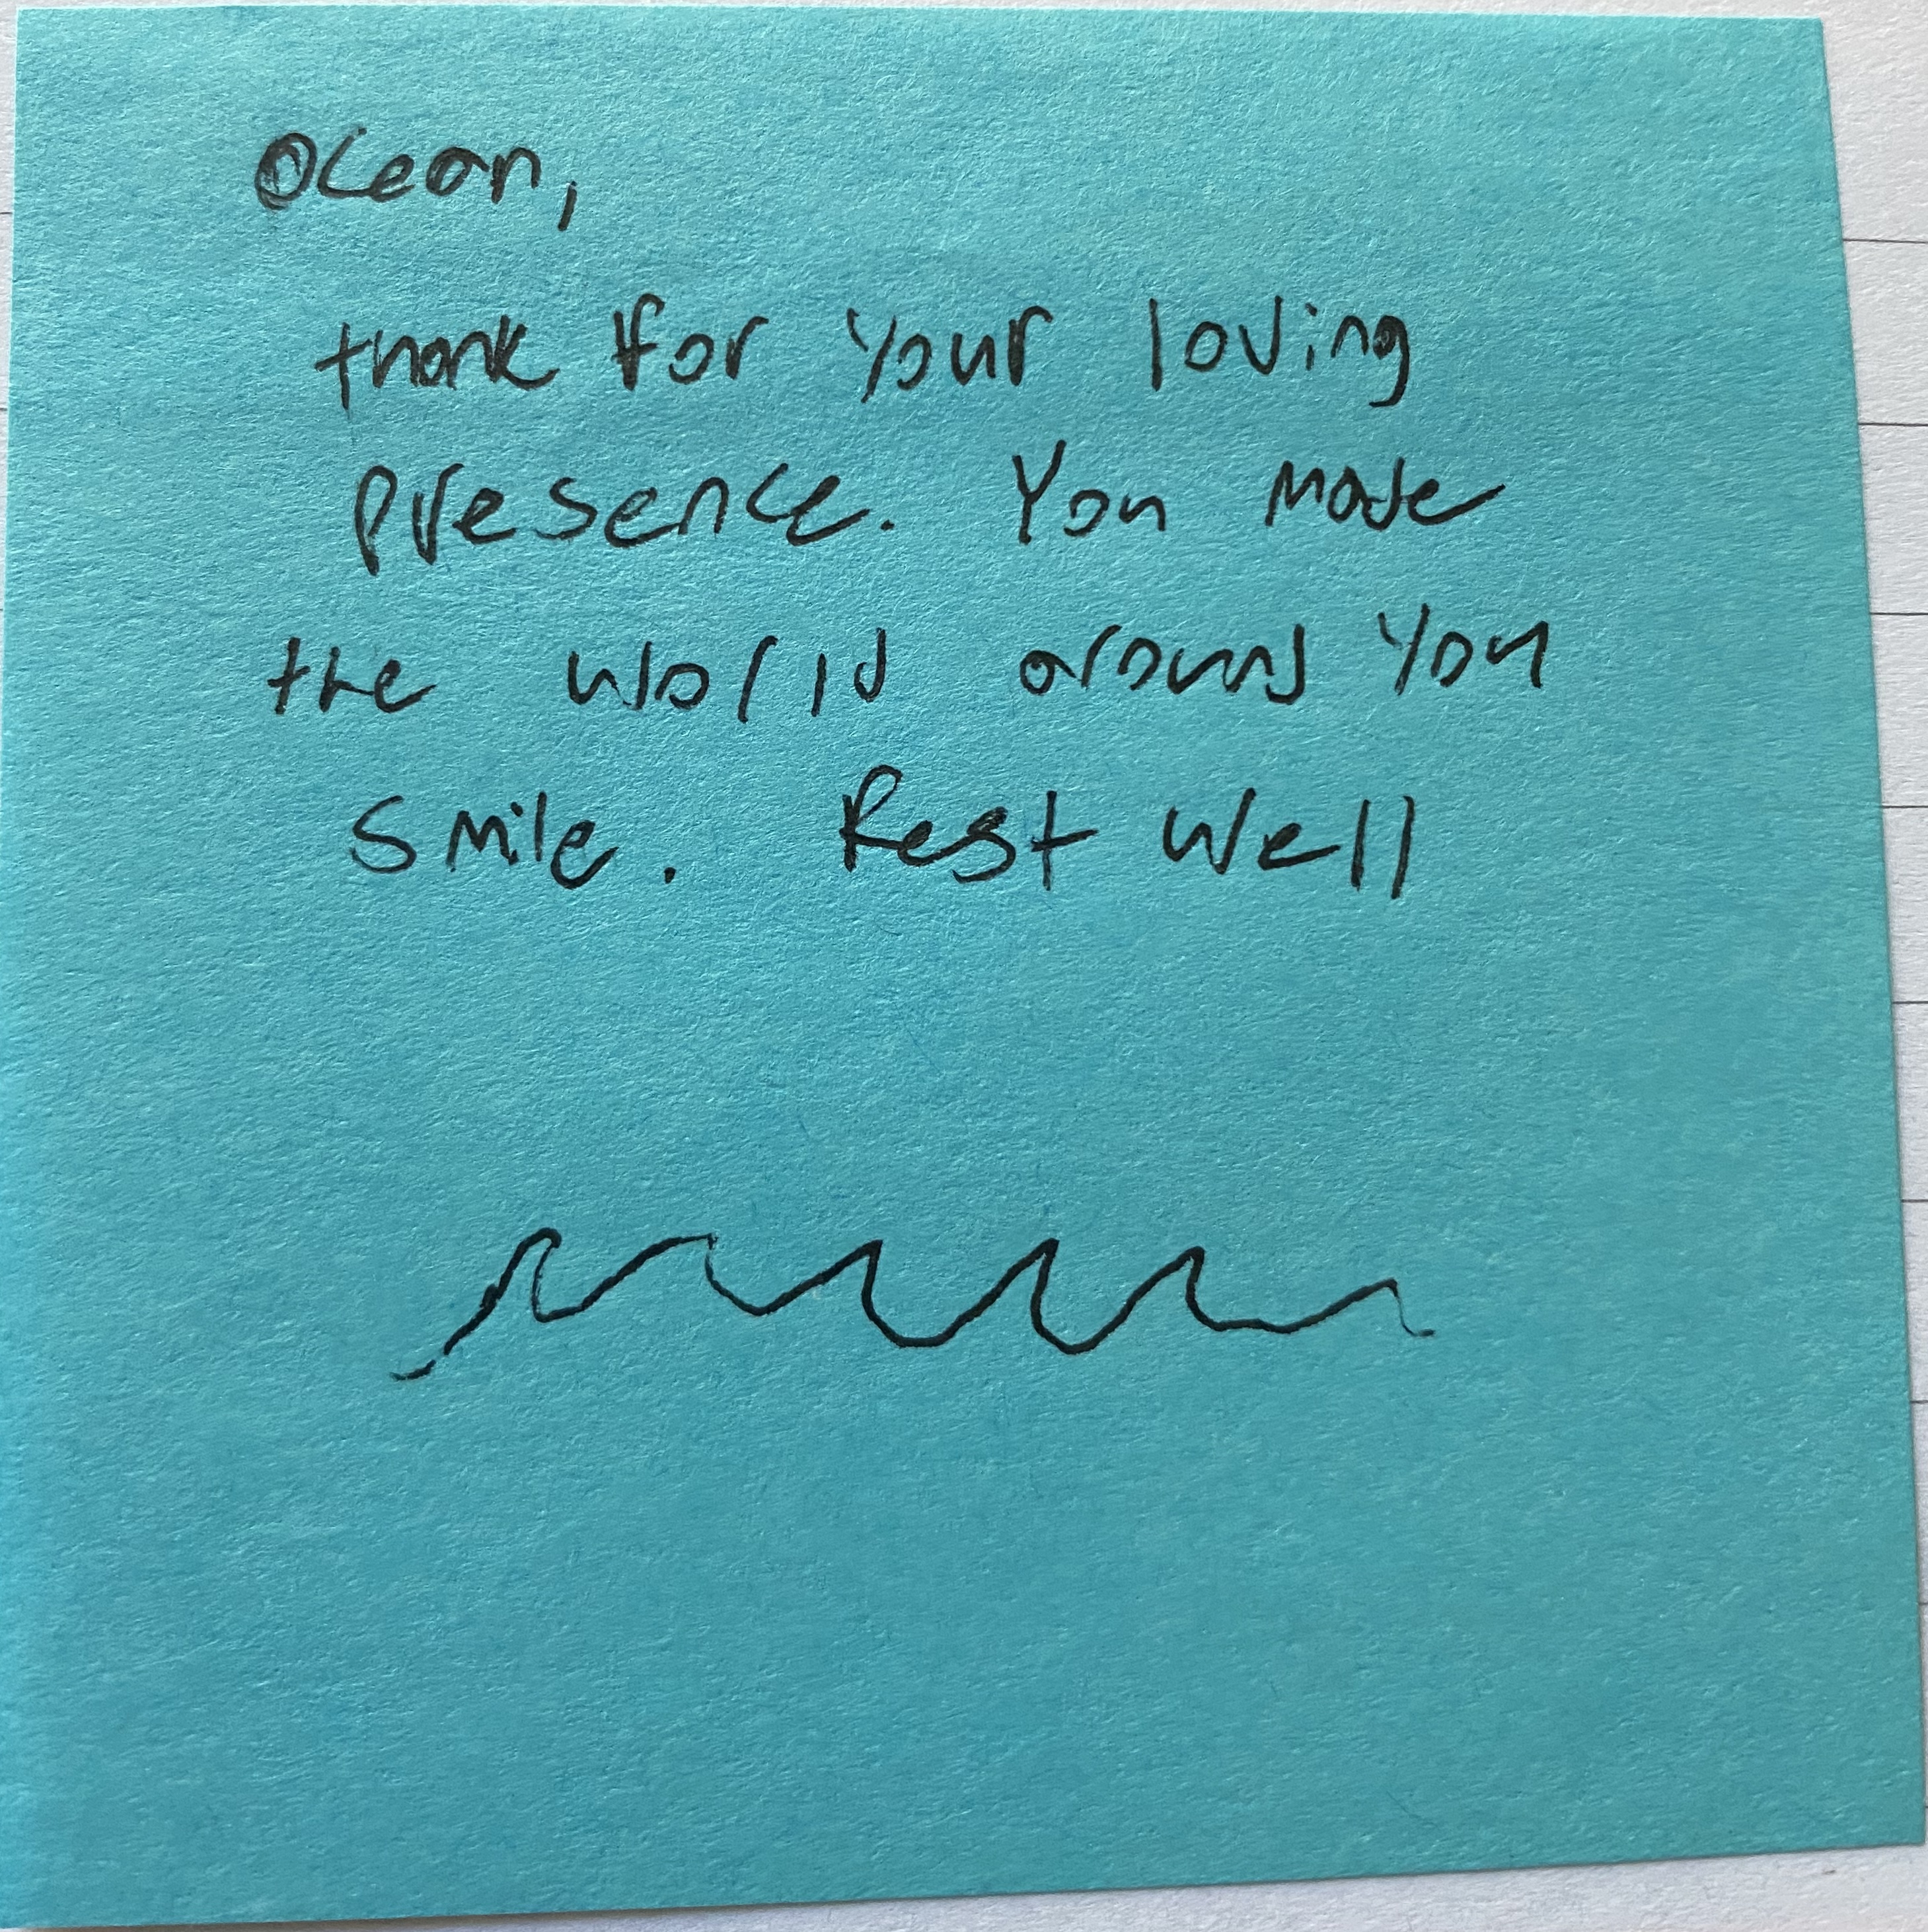 Ocean,
thank for your loving
presence. You made
the world around you
smile. Rest well